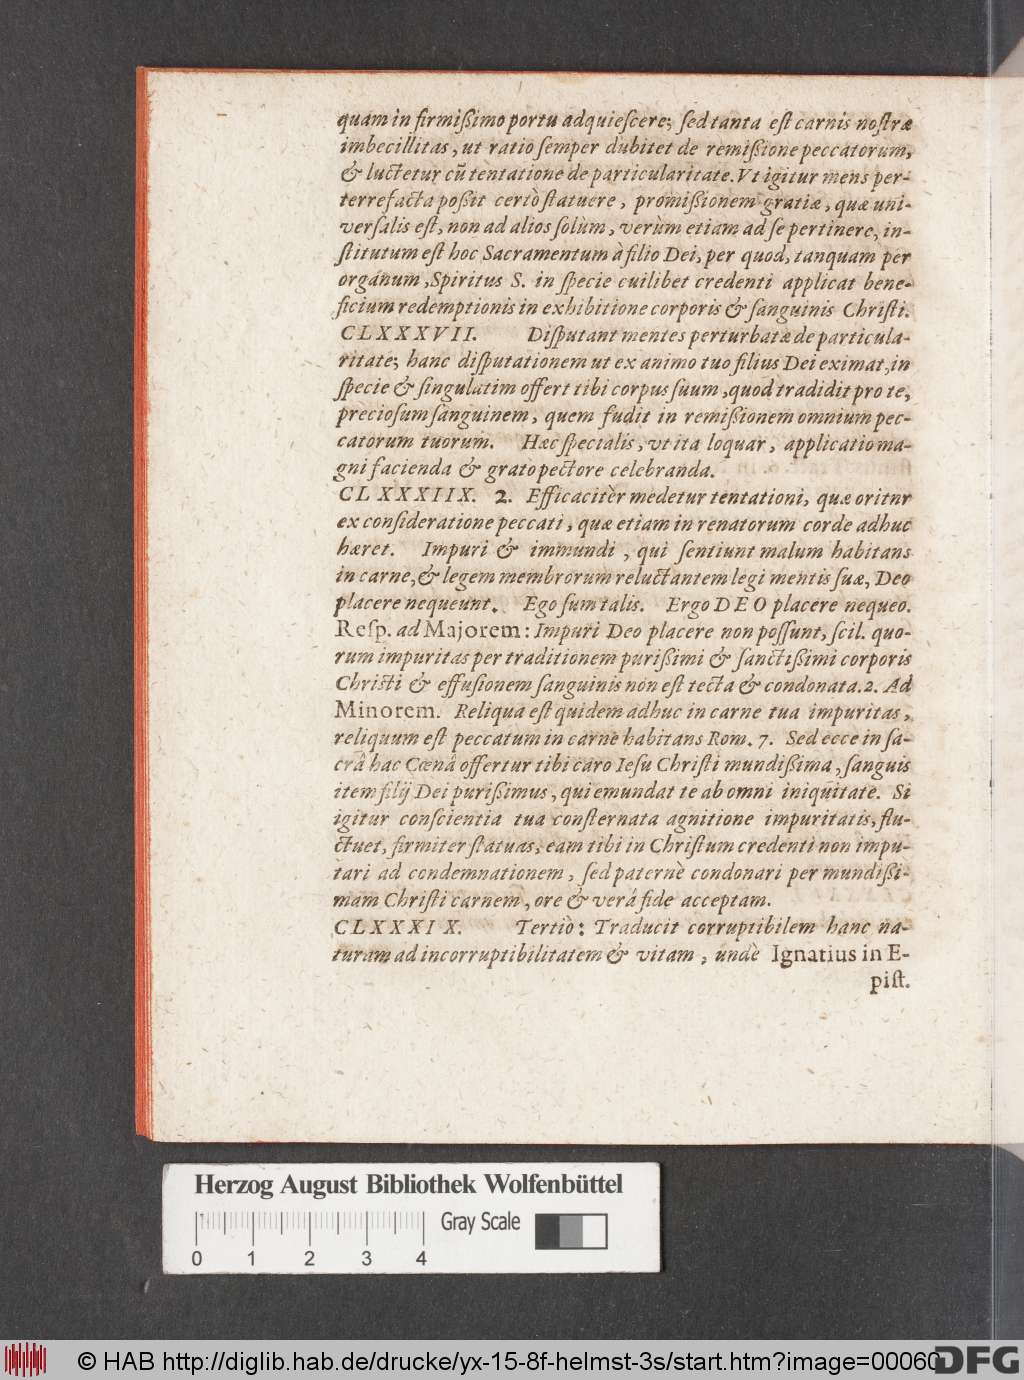 quam in firmißimo portu adquiescere; sed tanta est carnis nostræ
imbecillitas, ut ratio semper dubitet de remißione peccatorum,
& luctetur cũ tentatione de particularitate. Vt igitur mens per-
terrefacta poßit certò statuere, promißionem gratiæ, quæ uni-
versalis est, non ad alios solùm, verùm etiam ad se pertinere, in-
stitutum est hoc Sacramentum à filio Dei, per quod, tanquam per
organum, Spiritus S. in specie cuilibet credenti applicat bene-
ficium redemptionis in exhibitione corporis & sanguinis Christi.
CLXXXVII. Disputant mentes perturbatæ de particula-
ritate; hanc disputationem ut ex animo tuo filius Dei eximat, in
specie & singulatim offert tibi corpus suum, quod tradidit pro te,
preciosum sanguinem, quem fudit in remißionem omnium pec-
catorum tuorum. Hæc specialis, vt ita loquar, applicatio ma-
gni facienda & grato pectore celebranda.
CLXXXIIX. 2. Efficacitèr medetur tentationi, quæ oritnr
ex consideratione peccati, quæ etiam in renatorum corde adhuc
hæret. Impuri & immundi, qui sentiunt malum habitans
in carne, & legem membrorum reluctantem legi mentis suæ, Deo
placere nequeunt. Ego sum talis. Ergo DEO placere nequeo.
Resp. ad Majorem: Impuri Deo placere non possunt, scil. quo-
rum impuritas per traditionem purißimi & sanctißimi corporis
Christi & effusionem sanguinis non est tecta & condonata. 2. Ad
Minorem. Reliqua est quidem adhuc in carne tua impuritas,
reliquum est peccatum in carne habitans Rom. 7. Sed ecce in sa-
crâ hac Cœnâ offertur tibi caro Iesu Christi mundißima, sanguis
item filij Dei purißimus, qui emundat te ab omni iniquitate. Si
igitur conscientia tua consternata agnitione impuritatis, flu-
ctuet, firmiter statuas, eam tibi in Christum credenti non impu-
tari ad condemnationem, sed paternè condonari per mundißi-
mam Christi carnem, ore & verâ fide acceptam.
CLXXXIX. Tertiò: Traducit corruptibilem hanc na-
turam ad incorruptibilitatem & vitam, undè Ignatius in E-
pist.
Herzog August Bibliothek Wolfenbüttel
Gray Scale
0 1 2 3 4
© HAB http://diglib.hab.de/drucke/yx-15-8f-helmst-3s/start.htm?image=00060
DFG